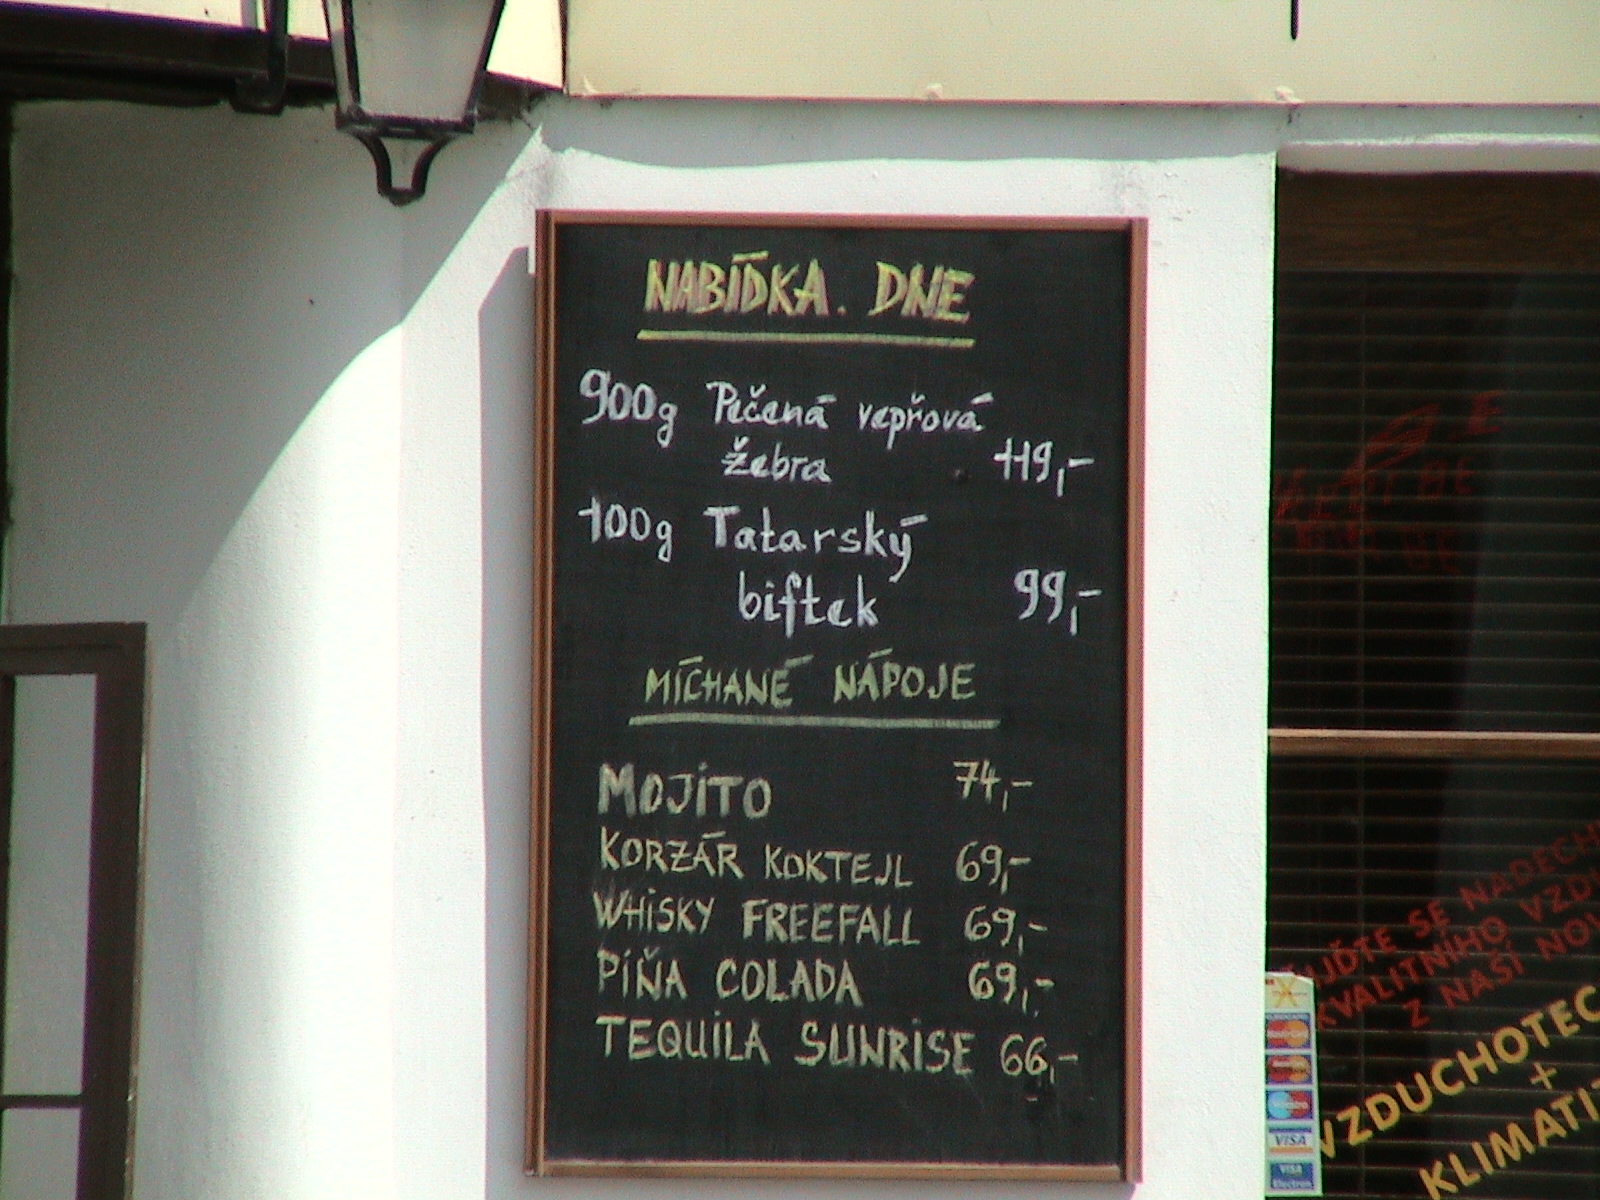 NABÍDKA. DNE
900g Pečená vepřová
žebra 119,-
100g Tatarský
biftek 99,-
MÍCHANÉ NÁPOJE
MOJITO 74,-
KORZÁR KOKTEJL 69,-
WHISKY FREEFALL 69,-
PIŇA COLADA 69,-
TEQUILA SUNRISE 66,-
SE NADECH
KVALITNÍHO VZDU
Z NAŠÍ NOV
VZDUCHOTEC
+
KLIMATI
VISA
VISA
Electron